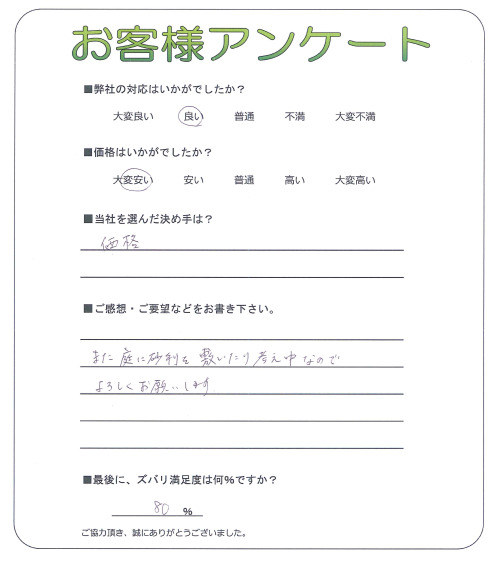 お客様アンケート
■弊社の対応はいかがでしたか？
大変良い 良い 普通 不満 大変不満
■価格はいかがでしたか？
大変安い 安い 普通 高い 大変高い
■当社を選んだ決め手は？
価格
■ご感想・ご要望などをお書き下さい。
また庭に砂利を敷いたり考え中なので
よろしくお願いします
■最後に、ズバリ満足度は何％ですか？
80 ％
ご協力頂き、誠にありがとうございました。